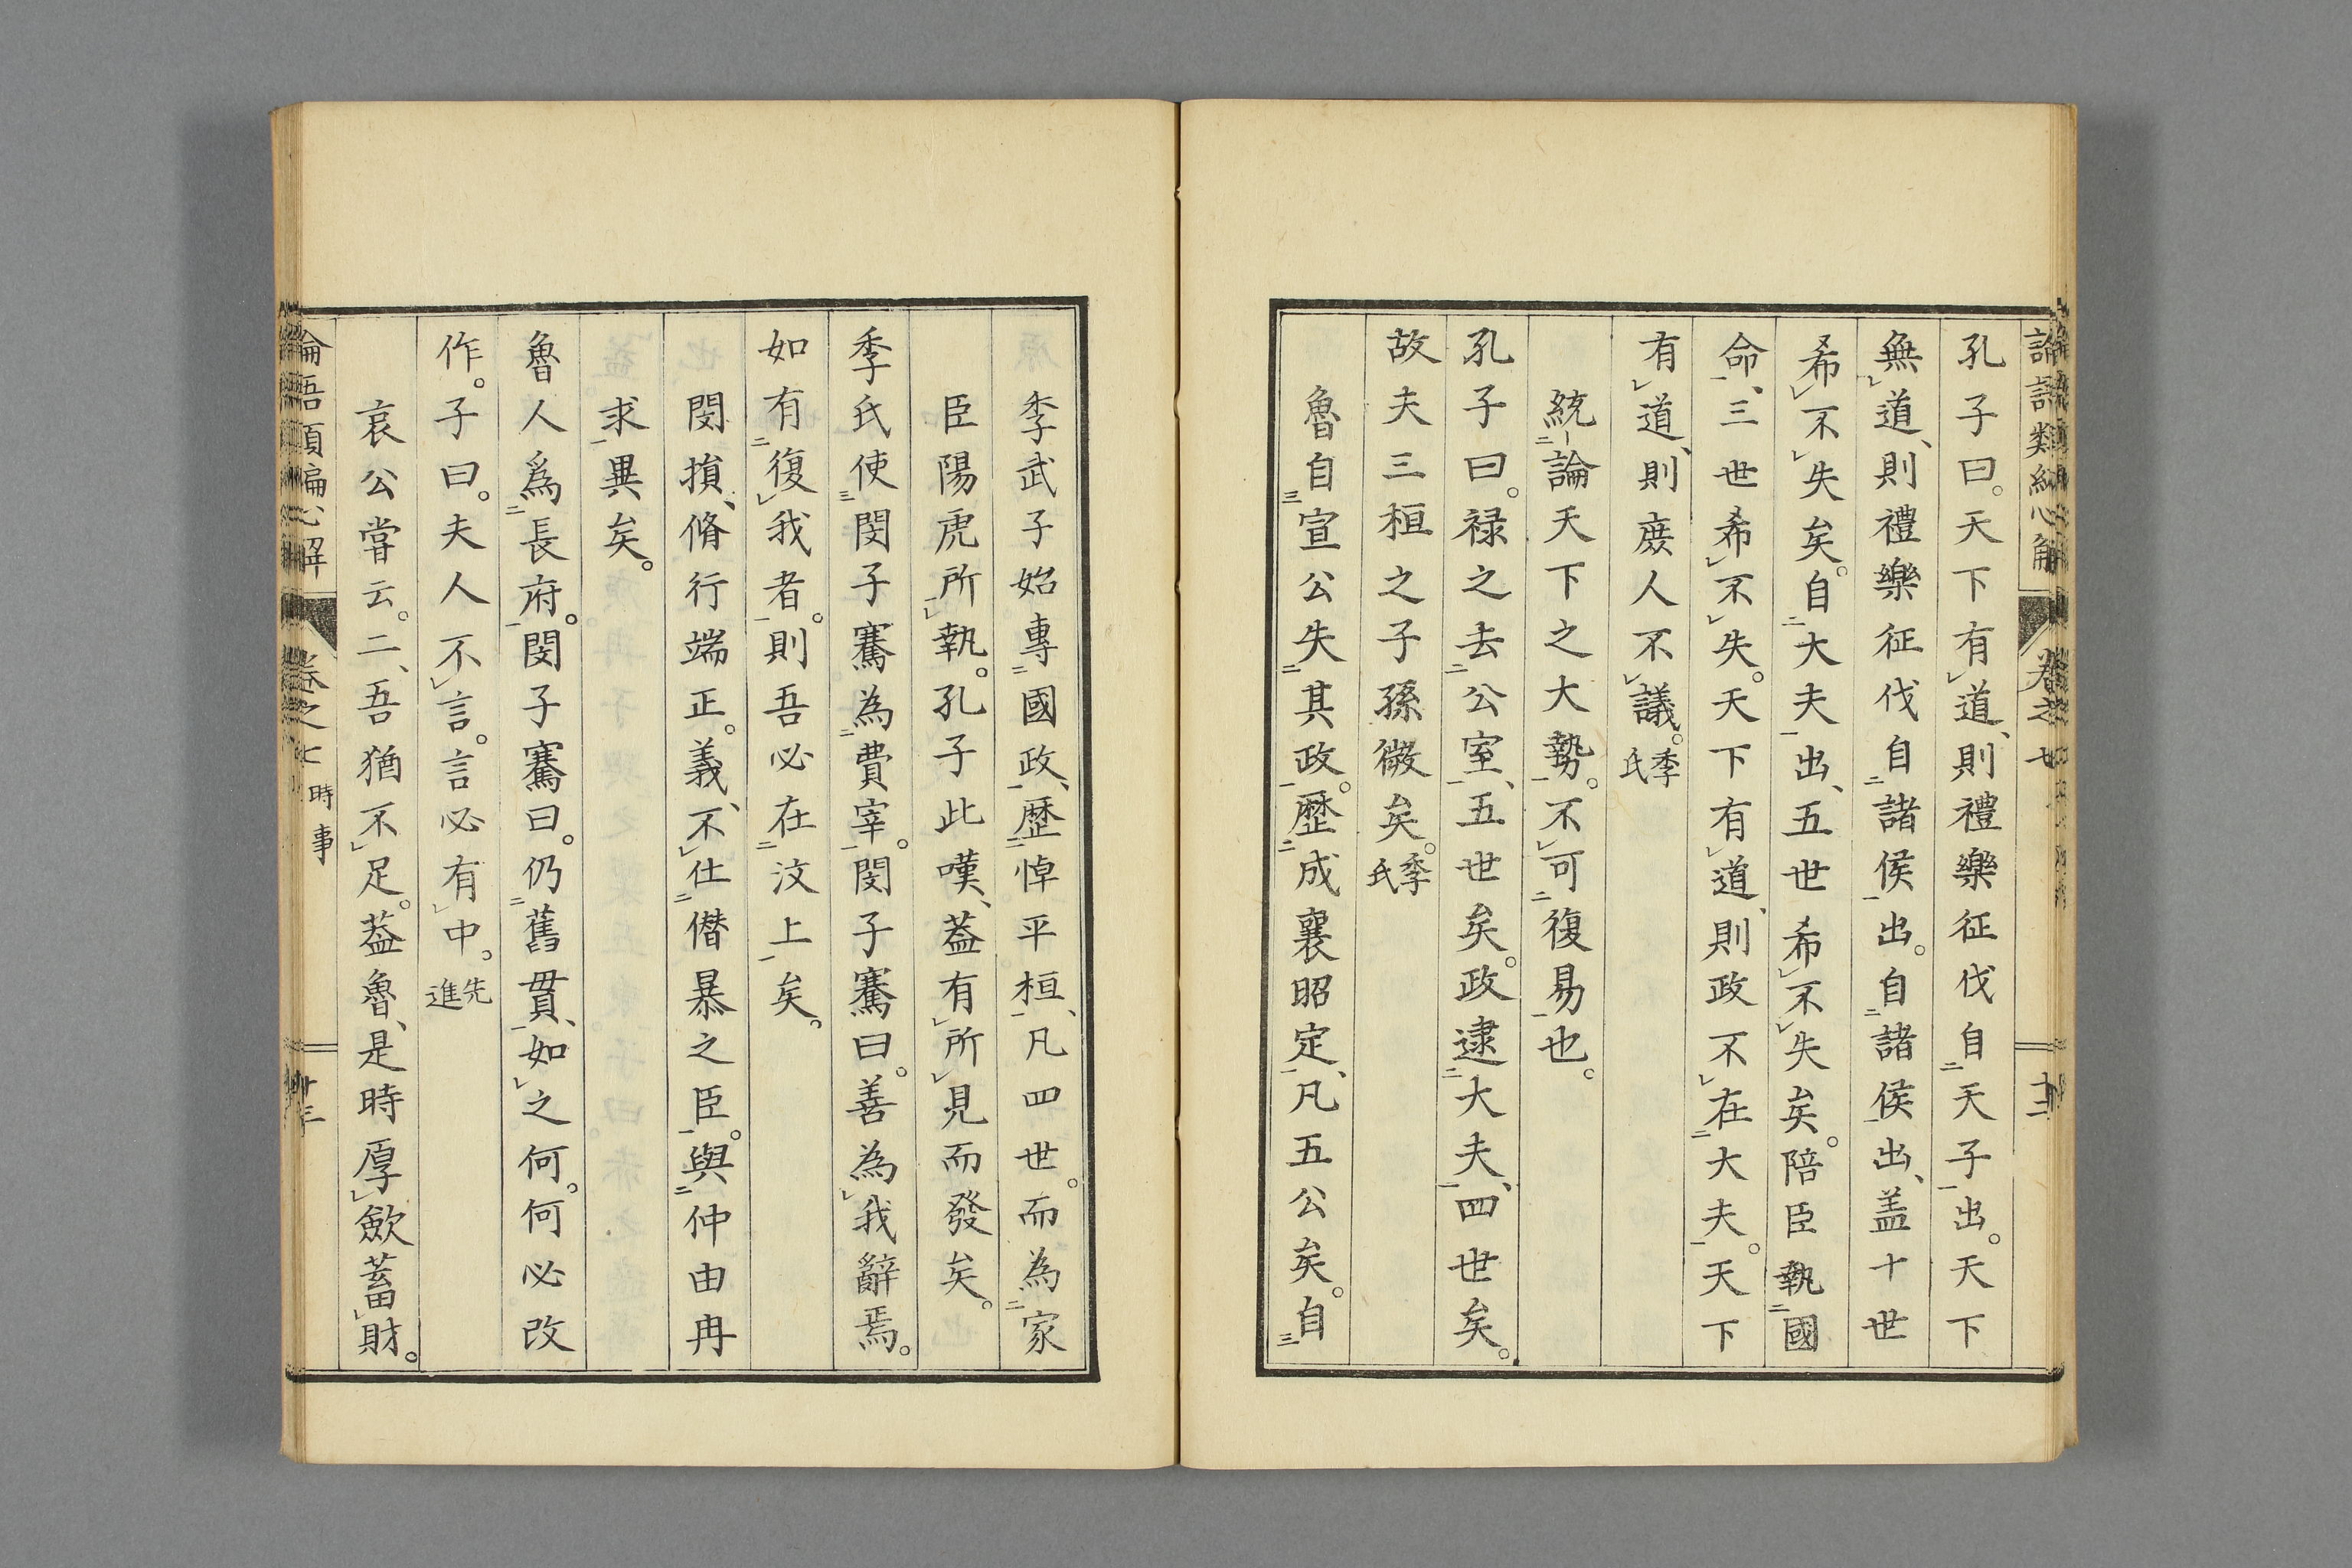 孔子曰。天下有道、則禮樂征伐自天子出。天下
無道、則禮樂征伐自諸侯出。自諸侯出、盖十世
希不失矣。自大夫出、五世希不失矣。陪臣執國
命、三世希不失。天下有道、則政不在大夫。天下
有道、則庻人不議。季氏
統論天下之大勢。不可復易也。
孔子曰。禄之去公室、五世矣。政逮大夫、四世矣。
故夫三桓之子孫微矣。季氏
魯自宣公失其政。歷成襄昭定、凡五公矣。自
季武子始專國政、歷悼平桓、凡四世。而為家
臣陽虎所執。孔子此嘆、葢有所見而發矣。
季氏使閔子騫為費宰。閔子騫曰。善為我辭焉。
如有復我者。則吾必在汶上矣。
閔損、脩行端正。義、不仕僭暴之臣。與仲由冉
求異矣。
魯人爲長府。閔子騫曰。仍舊貫、如之何。何必改
作。子曰。夫人不言。言必有中。先進
哀公甞云。二、吾猶不足。葢魯、是時厚歛蓄財。
卷之七 時事 十三